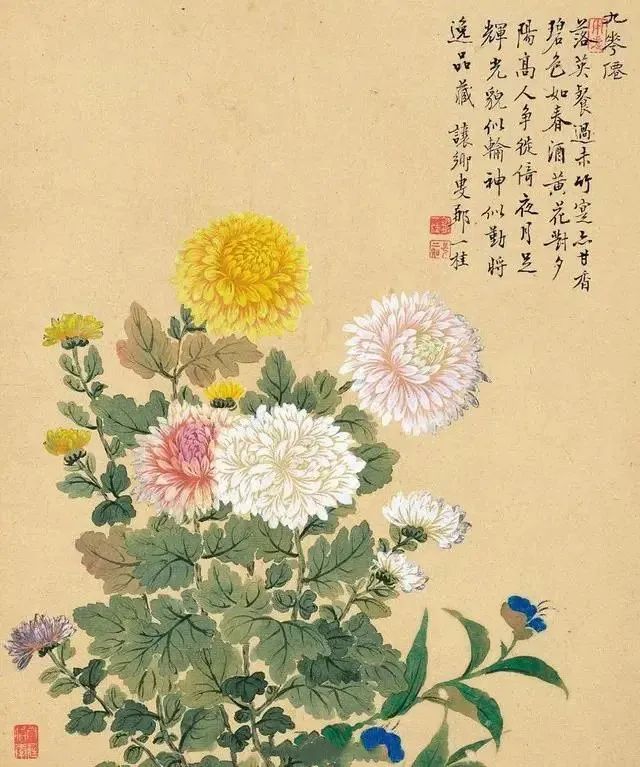 九華僊
落英餐過未竹寔亦甘香
碧色如春酒黃花對夕
陽高人爭徙倚夜月足
輝光貌似輪神似勤將
逸品藏 讓卿叟鄒一桂